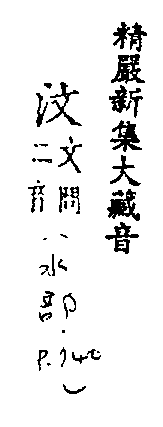 精嚴新集大藏音
汶
文問
二音
(水部.